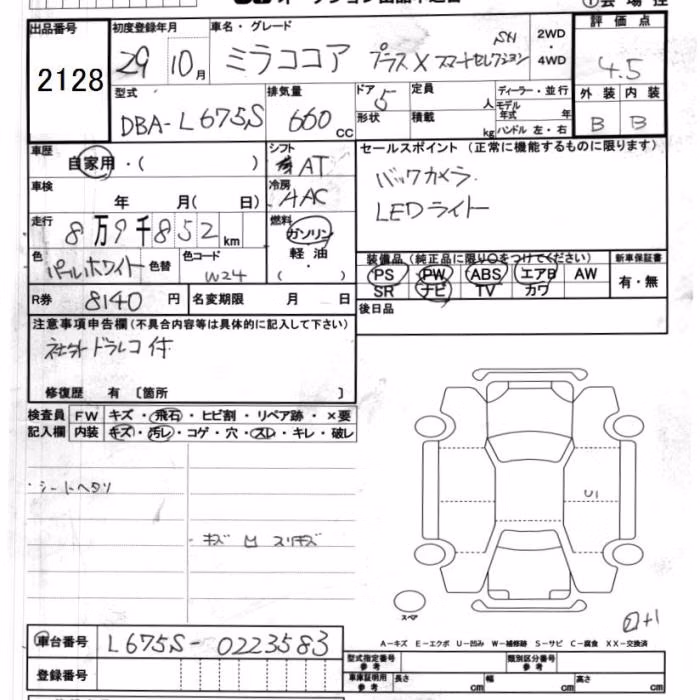 出品番号 初度登録年月 車名・グレード 2WD・4WD 評価点
2128 29 10月 ミラココア プラスX スマートセレクション SN 4.5
型式 排気量 ドア 定員 ディーラー・並行 外装 内装
DBA-L675S 660 CC 5 人 モデル年式 年 B B
形状 積載 kg ハンドル 左・右
車歴 シフト セールスポイント (正常に機能するものに限ります)
自家用・( ) AT バックカメラ
車検 冷房 LEDライト
年 月( 日) AAC
走行 燃料
8万9千852km ガソリン
軽油
( ・ )
色 色替 色コード 装備品(純正品に限り○をつけてください) 新車保証書
パールホワイト W24 PS PW ABS エアB AW 有・無
SR ナビ TV カワ
R券 8140円 名変期限 月 日 後日品
注意事項申告欄(不具合内容等は具体的に記入して下さい)
社外ドラレコ付
修復歴 有 〔箇所 〕
検査員 FW キズ・飛石・ヒビ割・リペア跡・×要
記入欄 内装 キズ・汚レ・コゲ・穴・スレ・キレ・破レ
・シートヘタリ
U1
・キズ 凹 スリキズ
スペア
②+1
車台番号 L675S-0223583
A-キズ E-エクボ U-凹み W-補修跡 S-サビ C-腐食 XX-交換済
登録番号 型式指定番号 参考 類別区分番号 参考
車庫証明用 参考 長さ cm 幅 cm 高さ cm